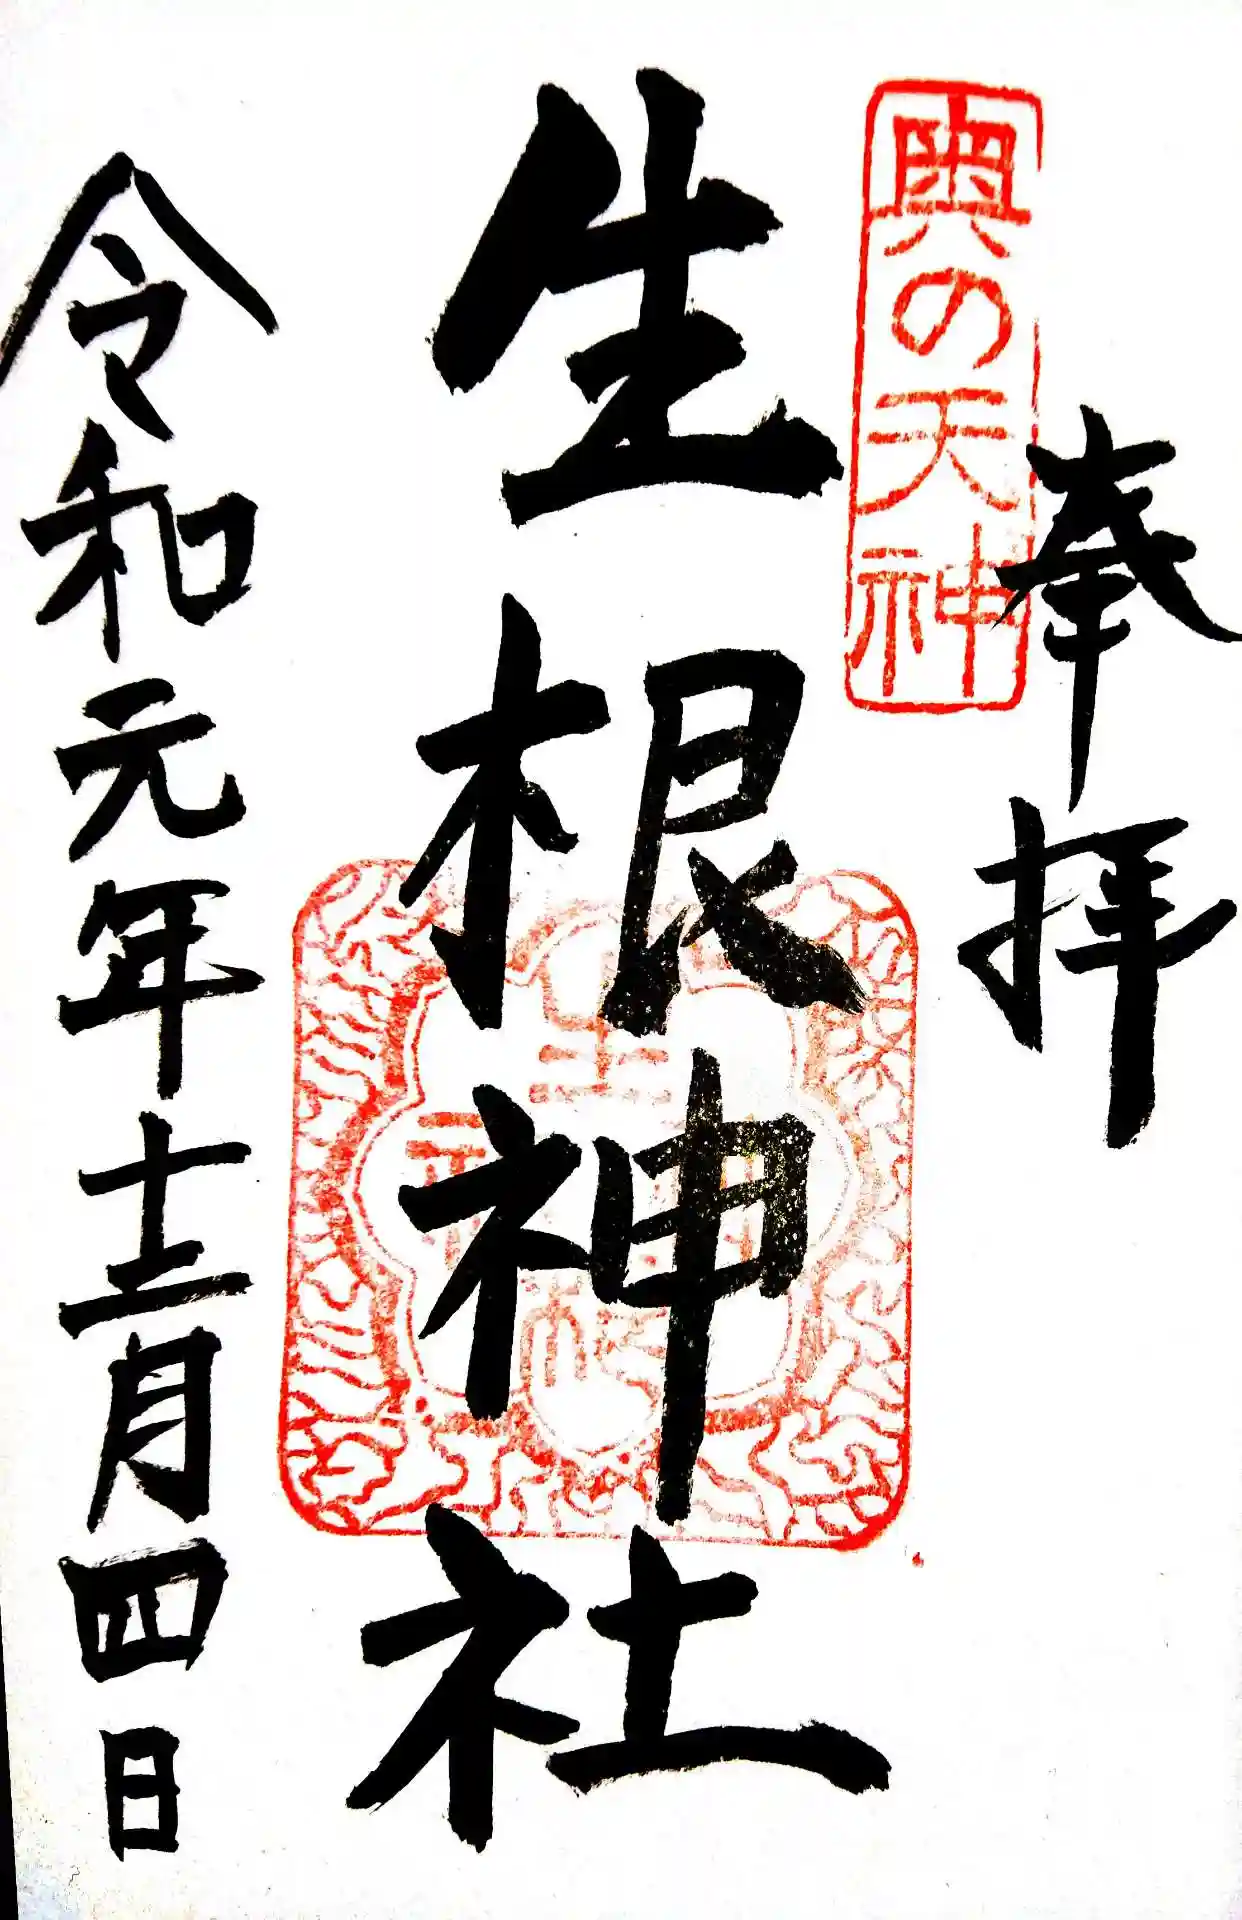 奉拝
奥の天神
生根神社
生根神社
令和元年十二月四日